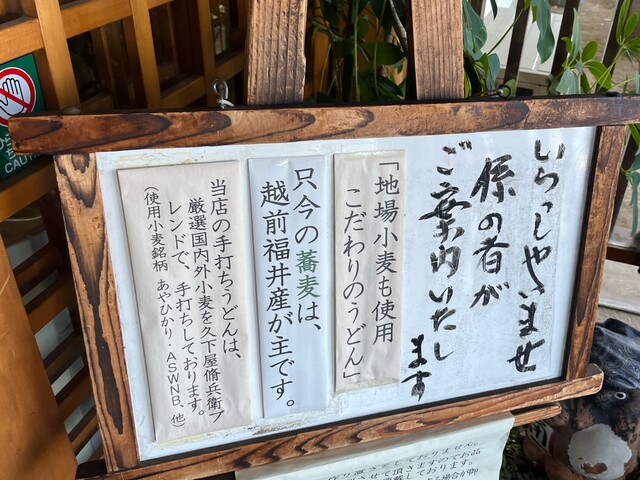 いらっしゃいませ
係の者が
ご案内いたし
ます
「地場小麦も使用
こだわりのうどん」
只今の蕎麦は、
越前福井産が主です。
当店の手打ちうどんは、
厳選国内外小麦を久下屋脩兵衛ブ
レンドで、手打ちしております。
（使用小麦銘柄 あやひかり・ASWNB、他）
CAUT